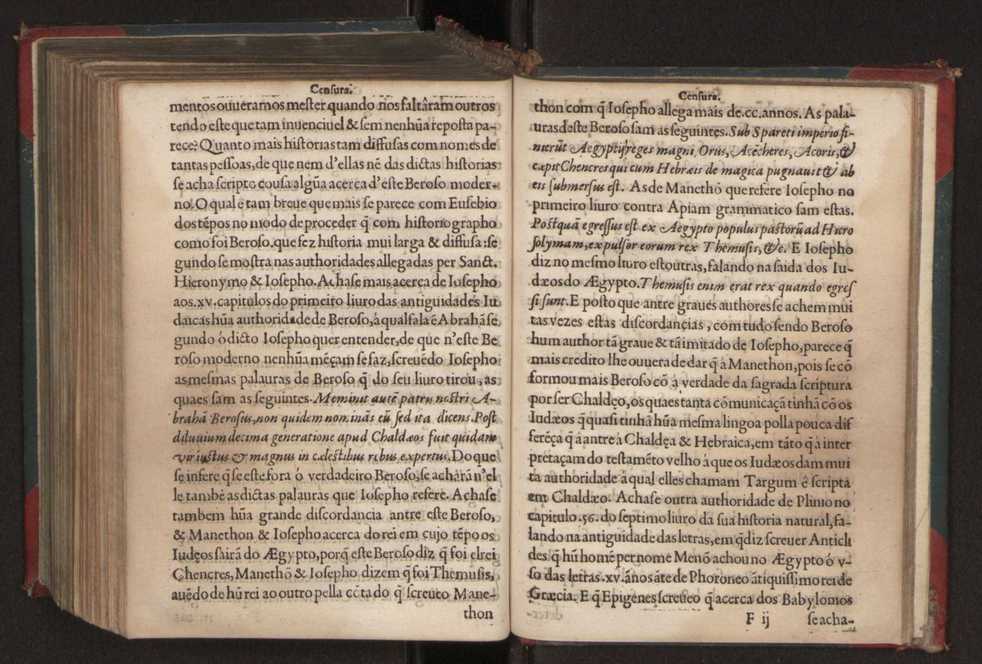 Censura.
mentos ouueramos mester quando nos faltâram outros
tendo este que tam inuenciuel & sem nenhũa reposta pa-
rece? Quanto mais historias tam diffusas com nomes de
tantas pessoas, de que nem d'ellas nẽ das dictas historias
se acha scripto cousa algũa acerca d'este Beroso moder-
no. O qual e tam breue que mais se parece com Eusebio
dos tẽpos no modo de proceder q̃ com historiographo
como foi Beroso, que fez historia mui larga & diffusa: se
gundo se mostra nas authoridades allegadas per Sanct.
Hieronymo & Iosepho. Achase mais acerca de Iosepho
aos. xv. capitulos do primeiro liuro das antiguidades Iu
daicas hũa authoridade de Beroso, â qual fala ẽ Abrahã se
gundo ò dicto Iosepho quer entender, de que n'este Be
roso moderno nenhũa mẽçam se faz, screuẽdo Iosepho
as mesmas palauras de Beroso q̃ do seu liuro tirou, as
quaes sam as seguintes. Meminit autẽ patris nostri A-
brahã Berosus, non quidem nominãs eũ sed ita dicens. Post
diluuium decima generatione apud Chaldæos fuit quidam
vir iustus & magnus in cælestibus rebus expertus. Do que
se infere q̃ se este fora ò verdadeiro Beroso, se acharã n'el
le tambẽ as dictas palauras que Iosepho refere. Achase
tambem hũa grande discordancia antre este Beroso,
& Manethon & Iosepho acerca do rei em cujo tẽpo os
Iudeos sairã do Ægypto, porq̃ este Beroso diz q̃ foi elrei
Chencres, Manethõ & Iosepho dizem q̃ foi Themusis,
auẽdo de hũ rei ao outro pella cõta do q̃ screueo Mane-
thon
Censura.
thon com q̃ Iosepho allega mais de .cc. annos. As pala-
uras deste Beroso sam as seguintes. Sub Spareti imperio fi-
nierũt Ægyptij reges magni, Orus, Acencheres, Acoris, &
cæpit Chencres qui cum Hebræis de magica pugnauit & ab
eis submersus est. As de Manethõ que refere Iosepho no
primeiro liuro contra Apiam grammatico sam estas.
Postquã egressus est ex Ægypto populus pastorũ ad Hiero
solymam, expulsor eorum rex Themusis, &c. E Iosepho
diz no mesmo liuro estoutras, falando na saida dos Iu-
dæos do Ægypto. Themusis enim erat rex quando egres
si sunt. E posto que antre graues authores se achem mui
tas vezes estas discordancias, com tudo sendo Beroso
hum author tã graue & tã imitado de Iosepho, parece q̃
mais credito lhe ouuera de dar q̃ à Manethon, pois se cõ
formou mais Beroso cõ à verdade da sagrada scriptura
por ser Chaldęo, os quaes tanta cõmunicaçã tinhã cõ os
Iudæos q̃ quasi tinhã hũa mesma lingoa polla pouca dif
ferẽça q̃ â antre à Chaldęa & Hebraica, em tãto q̃ à inter
pretaçam do testamẽto velho à que os Iudæos dam mui
ta authoridade à qual elles chamam Targum ê scripta
em Chaldæo. Achase outra authoridade de Plinio no
capitulo .56. do septimo liuro da sua historia natural, fa-
lando na antiguidade das letras, em q̃ diz screuer Anticli
des q̃ hũ homẽ per nome Menõ achou no Ægypto ò v-
so das letras .xv. ãnos ate de Phoroneo ãtiquissimo rei de
Græcia. E q̃ Epigenes screueo q̃ acerca dos Babylonios
F ij
se acha-